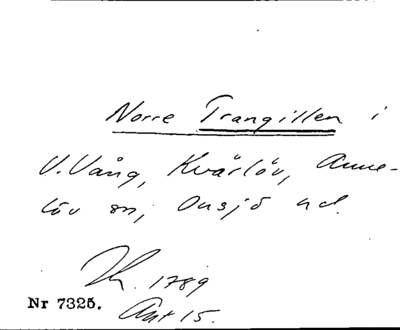 Norre Trangillen i
V. Vång, Kvärlöv, Anne-
löv sn, Onsjö hd.
1789
Nr 7325.
Akt 15.